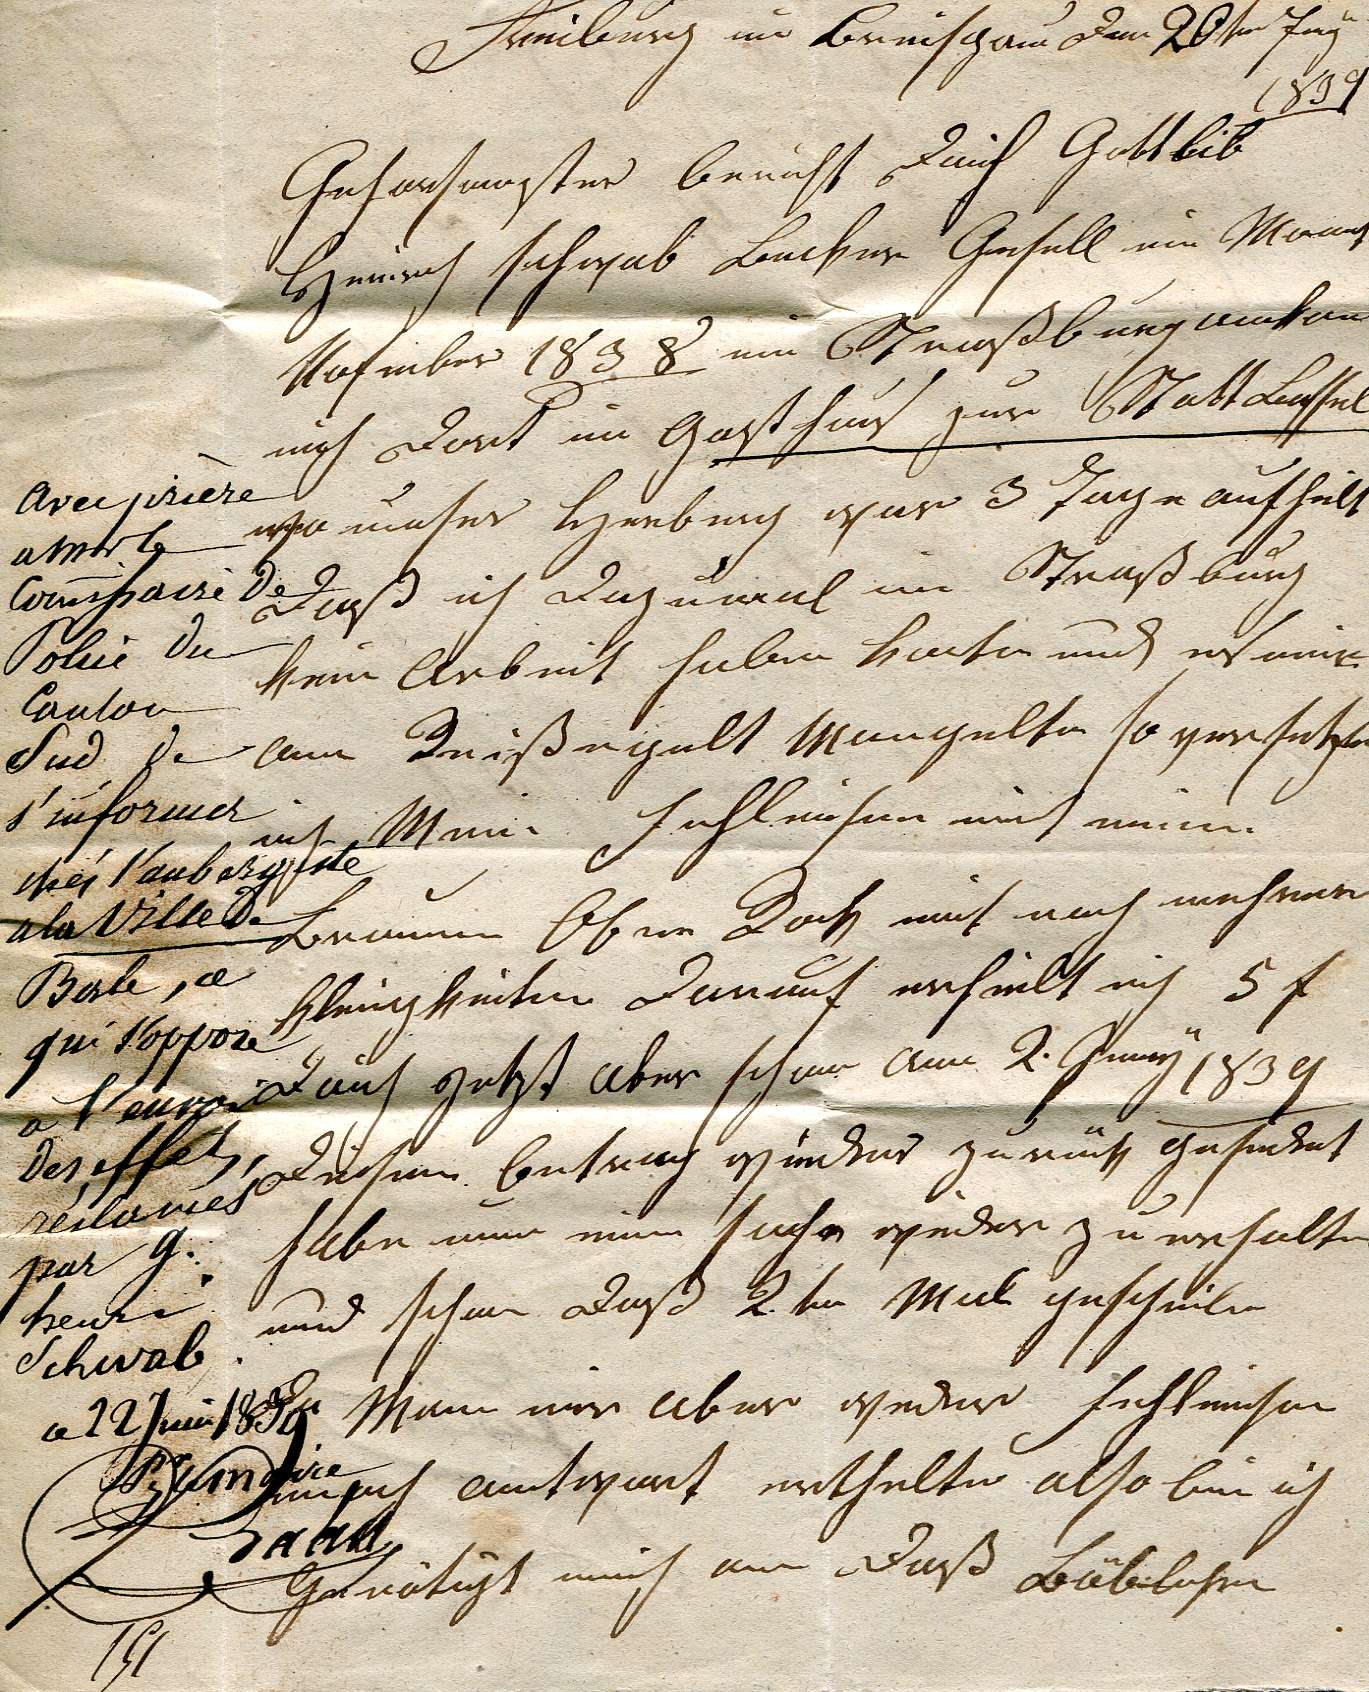 Freiburg im Breisgau den 20ten Juny
1839
Gehorsamster bericht Daich Gottleib
Heinrich schwab Becker Gesell im Monat
Nofember 1838 in Straßburg ankam
mich dort im Gasthaus zur Statt Bassel
wo unser Herberg war 3 Tage aufhielt
Daß ich dazumal in Straßburg
kein Arbeit haben konte und es mir
am Reißegelt Mangelte so versetzte
ich Mein Felleisen mit einem
Braunen Ober Rock mit noch mehrere
kleinigkeiten darauf erhielt ich 5 f
Daich jetzt aber schon am 2. Juny 1839
diesen betrag wieder zurück gesendet
habe um mein sache wieder zu erhalten
und schon daß 2.te Mal geschrieben
Da Man mir aber weder Felleisen
noch antwort ertheilte also bin ich
Genötigt mich an daß Löbliche
avec prière
a Mr le
Commissaire de
Police du
Canton
Sud de
s'informer
chés l'aubergiste
a la Ville de
Basle, ce
qui s'oppose
a l'envoi
des effets,
réclamés
par G.
henri
Schwab.
a 22 Juin 1839
Pr le maire